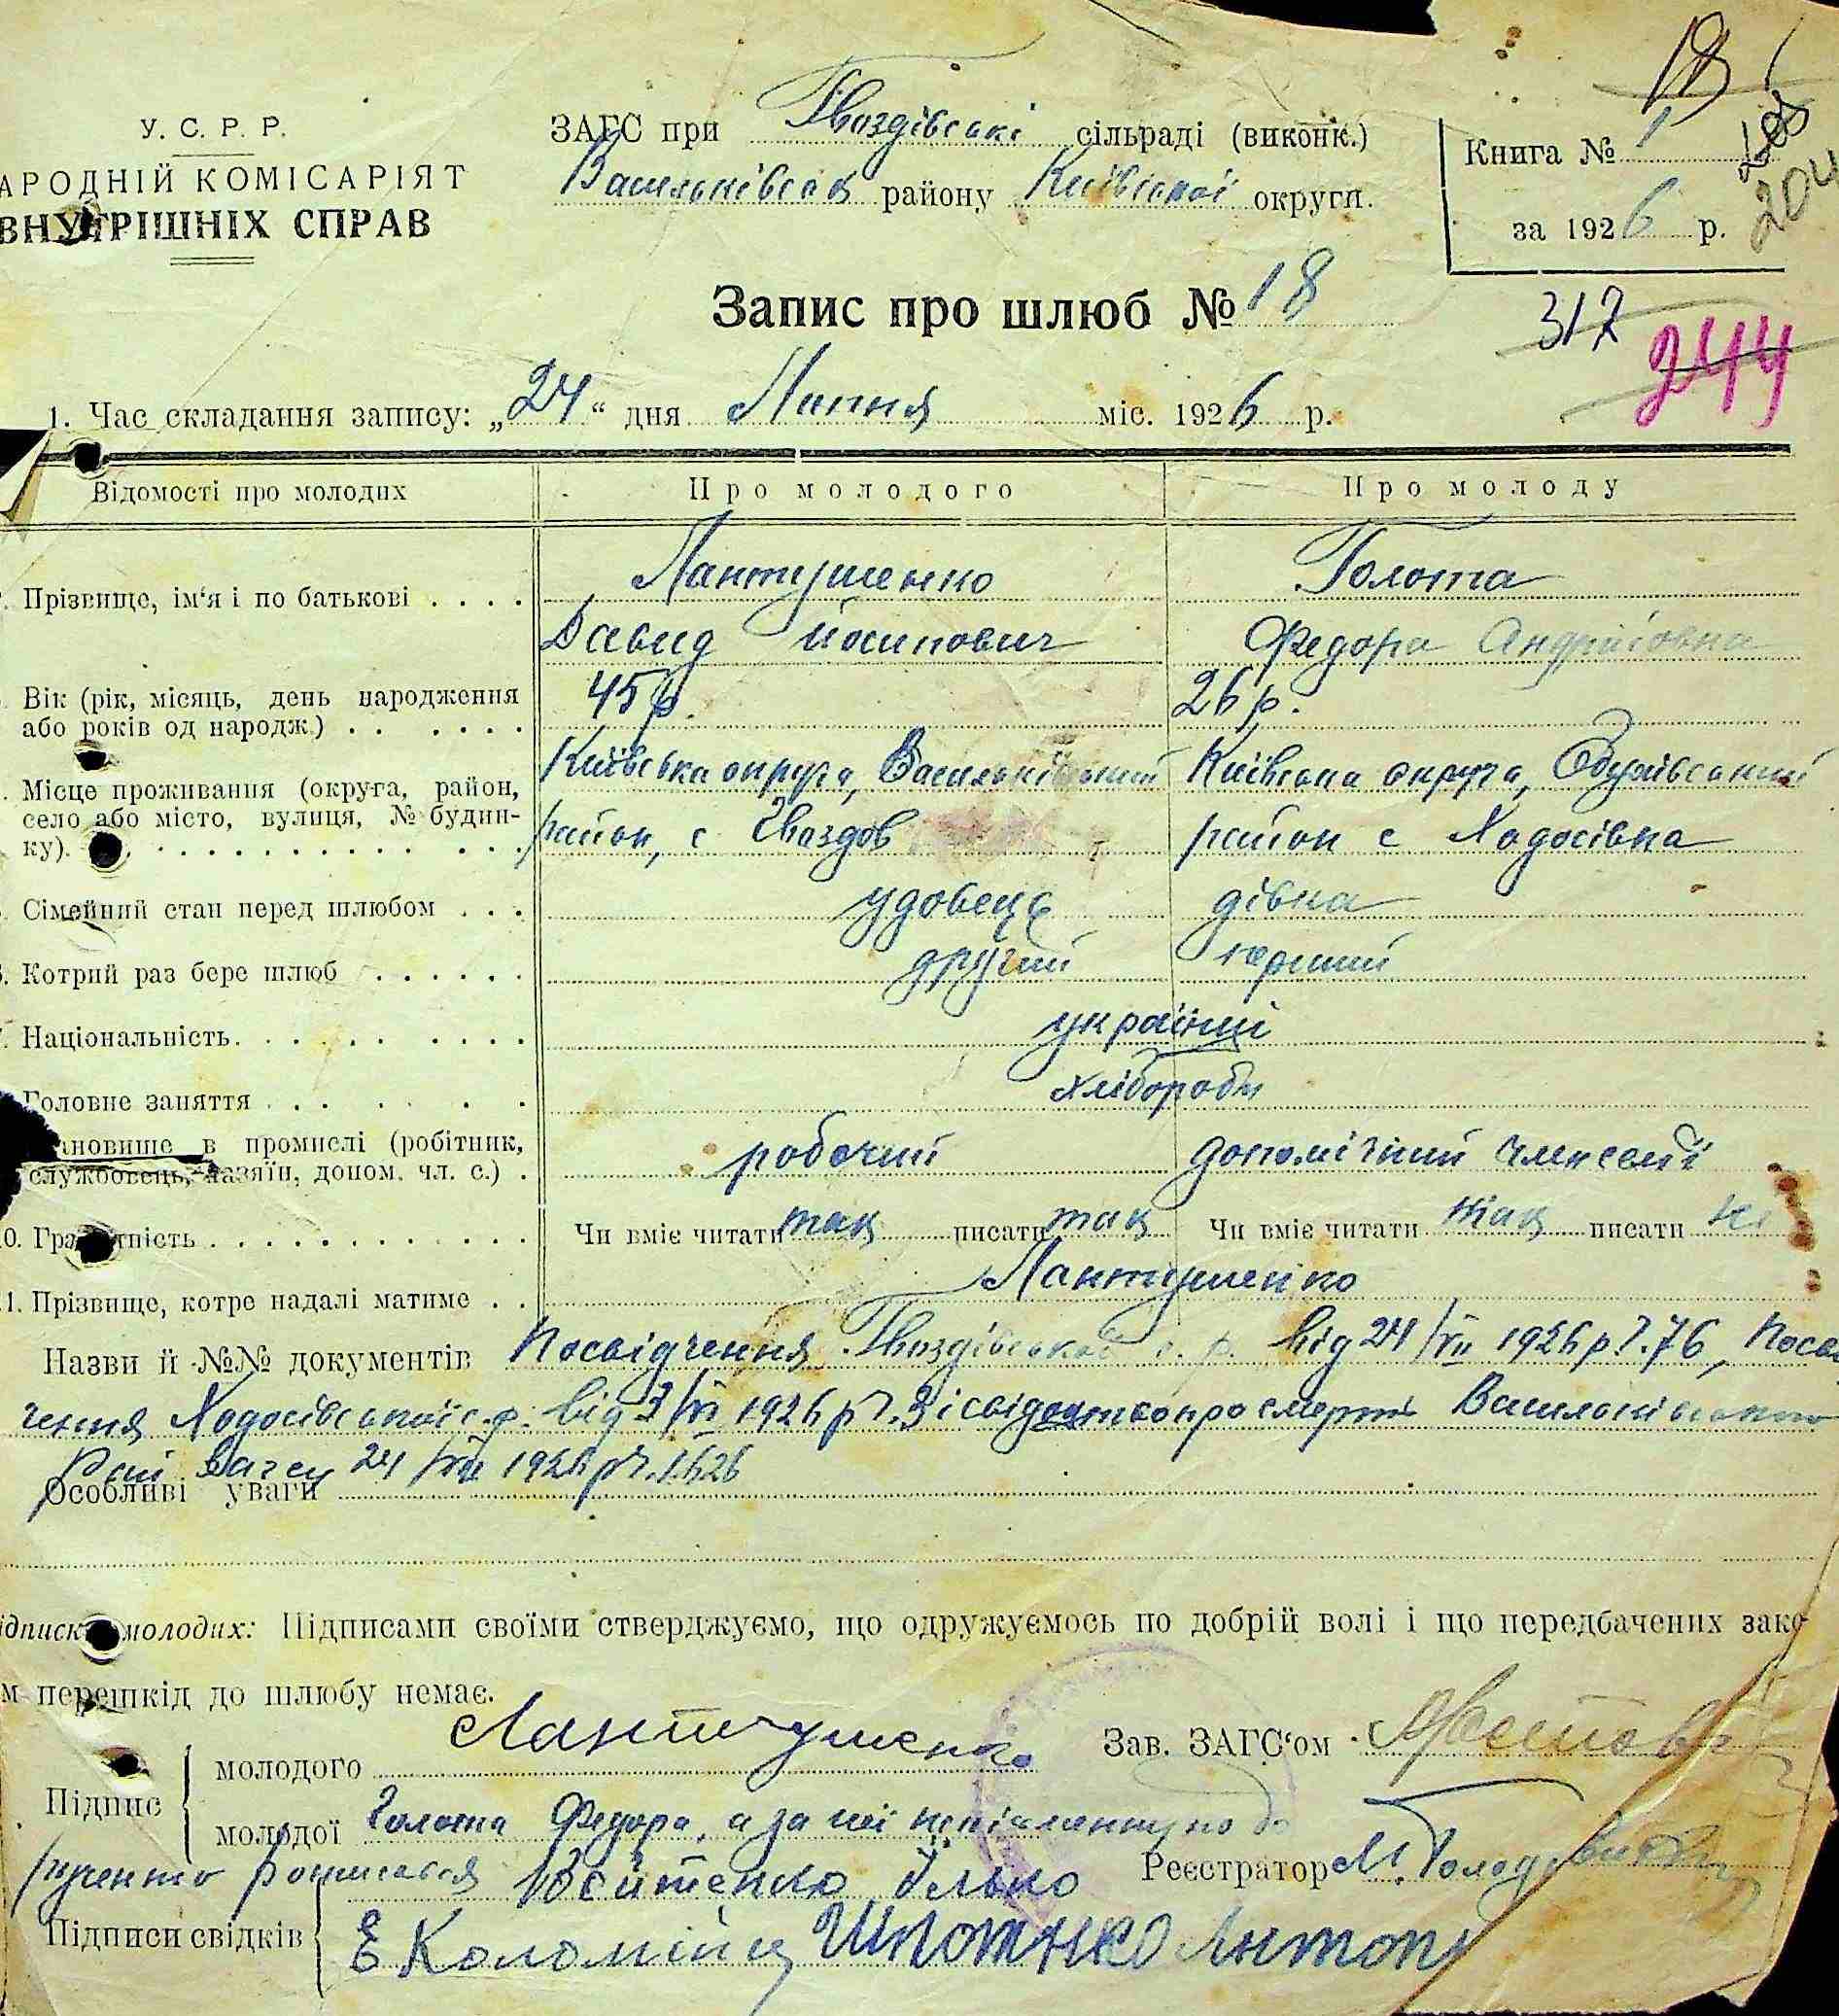 У. С. Р. Р.
АРОДНІЙ КОМІСАРІЯТ
ВНУТРІШНІХ СПРАВ
ЗАГС при Гвоздівські сільраді (виконк.)
Васильківськ району Київської округи.
Книга № 1
за 1926 р.
18
204
Запис про шлюб № 18
317
244
1. Час складання запису: „24“ дня Липня міс. 1926 р.
Відомості про молодих Про молодого Про молоду
Прізвище, ім‘я і по батькові . . . . Лантушенко Голота
Давид Йосипович Федора Андріївна
Вік (рік, місяць, день народження 45 р. 26 р.
або років од народж.) . . . . . .
Київська округа, Васильківський Київська округа, Обухівський
Місце проживання (округа, район,
село або місто, вулиця, № будин- район, с Гвоздов район с Ходосівка
ку).
Сімейний стан перед шлюбом . . . удовець дівка
Котрий раз бере шлюб . . . . . . другий перший
Національність. українці
Головне заняття хлібороби
ановище в промислі (робітник, робочий допомічний член семї
службовець, хазяїн, допом. чл. с.) .
0. Грамотність Чи вміє читати так писати так Чи вміє читати так писати ні
1. Прізвище, котре надалі матиме . . Лантушенко
Назви й №№ документів Посвідчення Гвоздівської с. р. від 24/VII 1926 р Ч. 76, Посві
чення Ходосівської с. р. від 3/VI 1926 р Ч. 3 і свідоцтво про смерть Васильківського
Рай Загсу 24/VII 1926 р Ч. 1626
Особливі уваги
ідписка молодих: Підписами своїми стверджуємо, що одружуємось по добрій волі і що передбачених зако
м перешкід до шлюбу немає.
Підпис молодого Лантушенко Зав. ЗАГС‘ом
молодої Голота Федора, а за неї неписьменну по до
рученню росписався Войтенко Ілько Реєстратор М.
Підписи свідків Е Коломієць Шпотенко Антон